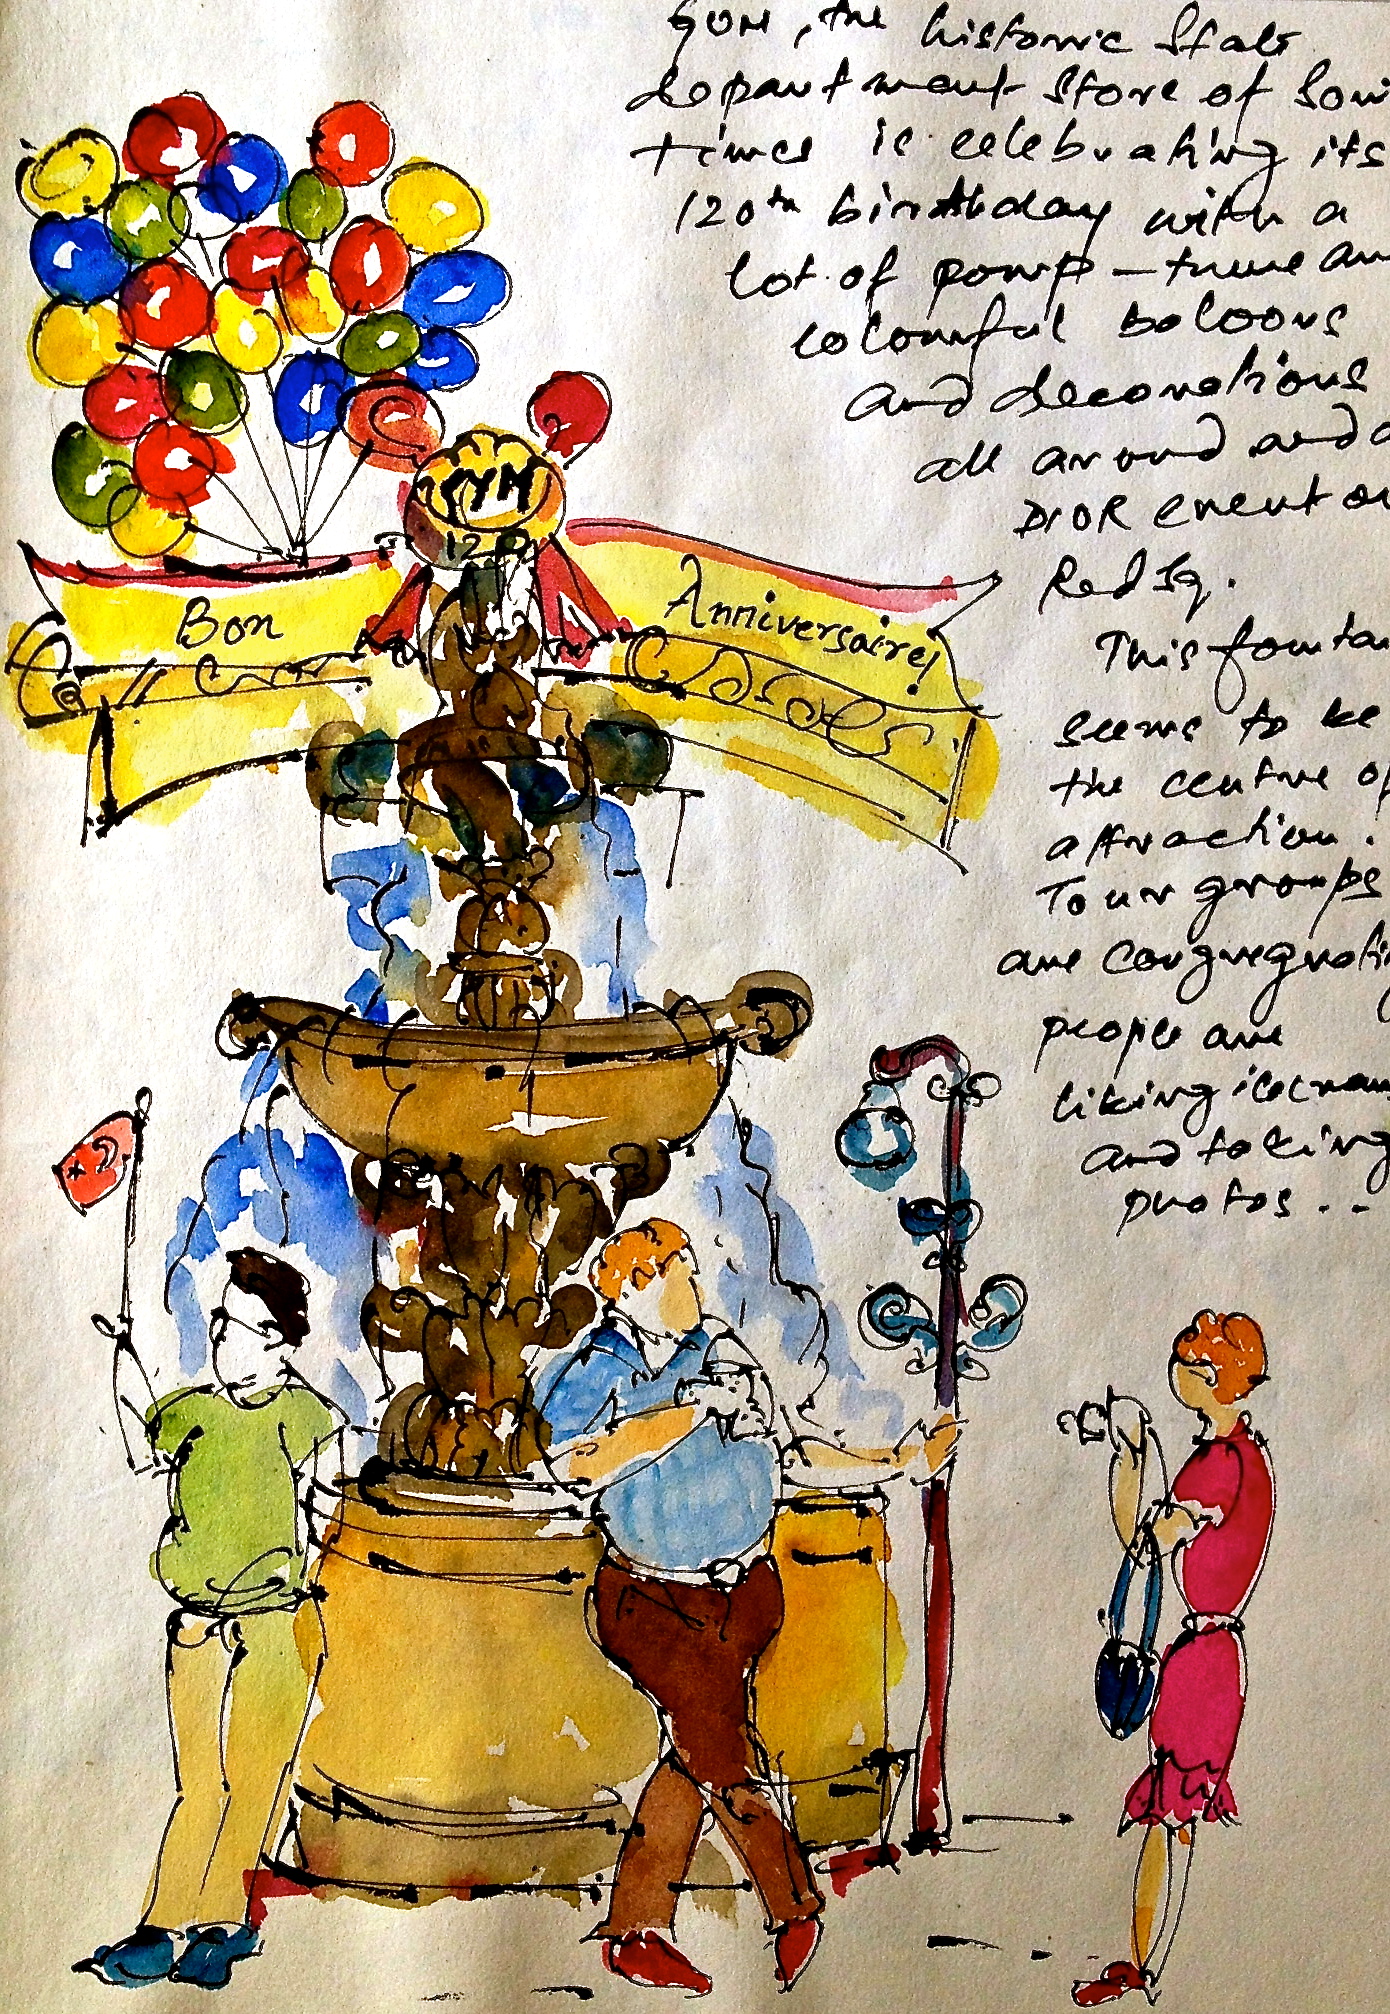 GUM, the historic State
department store of Sovi
times is celebrating its
120th birthday with a
lot of pomp - there are
colourful baloons
and decorations
all around and a
DIOR event on
Red Sq.
This fountai
seems to be
the centre of
attraction.
Tour groups
are congregatin
people are
liking icecream
and taking
photos ..
ГУМ
120
Bon
Anniversaire!